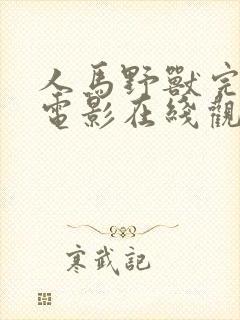 人馬野獸完
電影在綫觀
寒武記